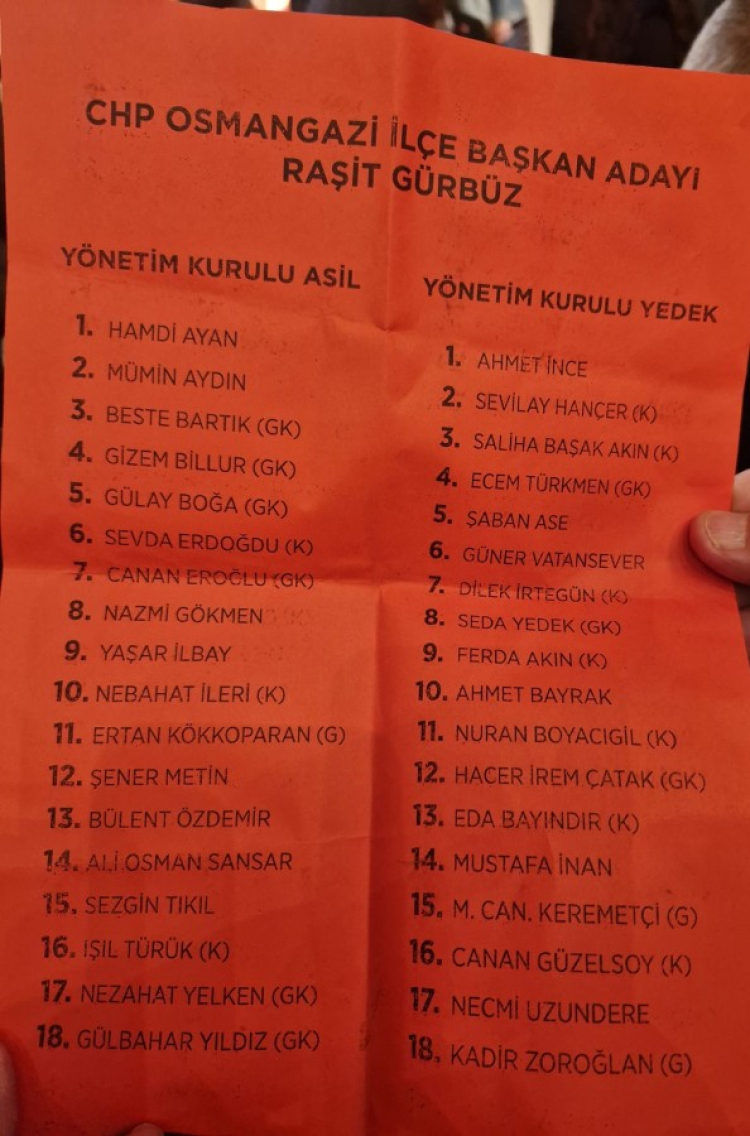 CHP OSMANGAZİ İLÇE BAŞKAN ADAYI
RAŞİT GÜRBÜZ
YÖNETİM KURULU ASİL
1. HAMDİ AYAN
2. MÜMİN AYDIN
3. BESTE BARTIK (GK)
4. GİZEM BİLLUR (GK)
5. GÜLAY BOĞA (GK)
6. SEVDA ERDOĞDU (K)
7. CANAN EROĞLU (GK)
8. NAZMİ GÖKMEN
9. YAŞAR İLBAY
10. NEBAHAT İLERİ (K)
11. ERTAN KÖKKOPARAN (G)
12. ŞENER METİN
13. BÜLENT ÖZDEMİR
14. ALİ OSMAN SANSAR
15. SEZGİN TIKIL
16. IŞIL TÜRÜK (K)
17. NEZAHAT YELKEN (GK)
18. GÜLBAHAR YILDIZ (GK)
YÖNETİM KURULU YEDEK
1. AHMET İNCE
2. SEVİLAY HANÇER (K)
3. SALİHA BAŞAK AKIN (K)
4. ECEM TÜRKMEN (GK)
5. ŞABAN ASE
6. GÜNER VATANSEVER
7. DİLEK İRTEGÜN (K)
8. SEDA YEDEK (GK)
9. FERDA AKIN (K)
10. AHMET BAYRAK
11. NURAN BOYACIGİL (K)
12. HACER İREM ÇATAK (GK)
13. EDA BAYINDIR (K)
14. MUSTAFA İNAN
15. M. CAN. KEREMETÇİ (G)
16. CANAN GÜZELSOY (K)
17. NECMİ UZUNDERE
18. KADİR ZOROĞLAN (G)